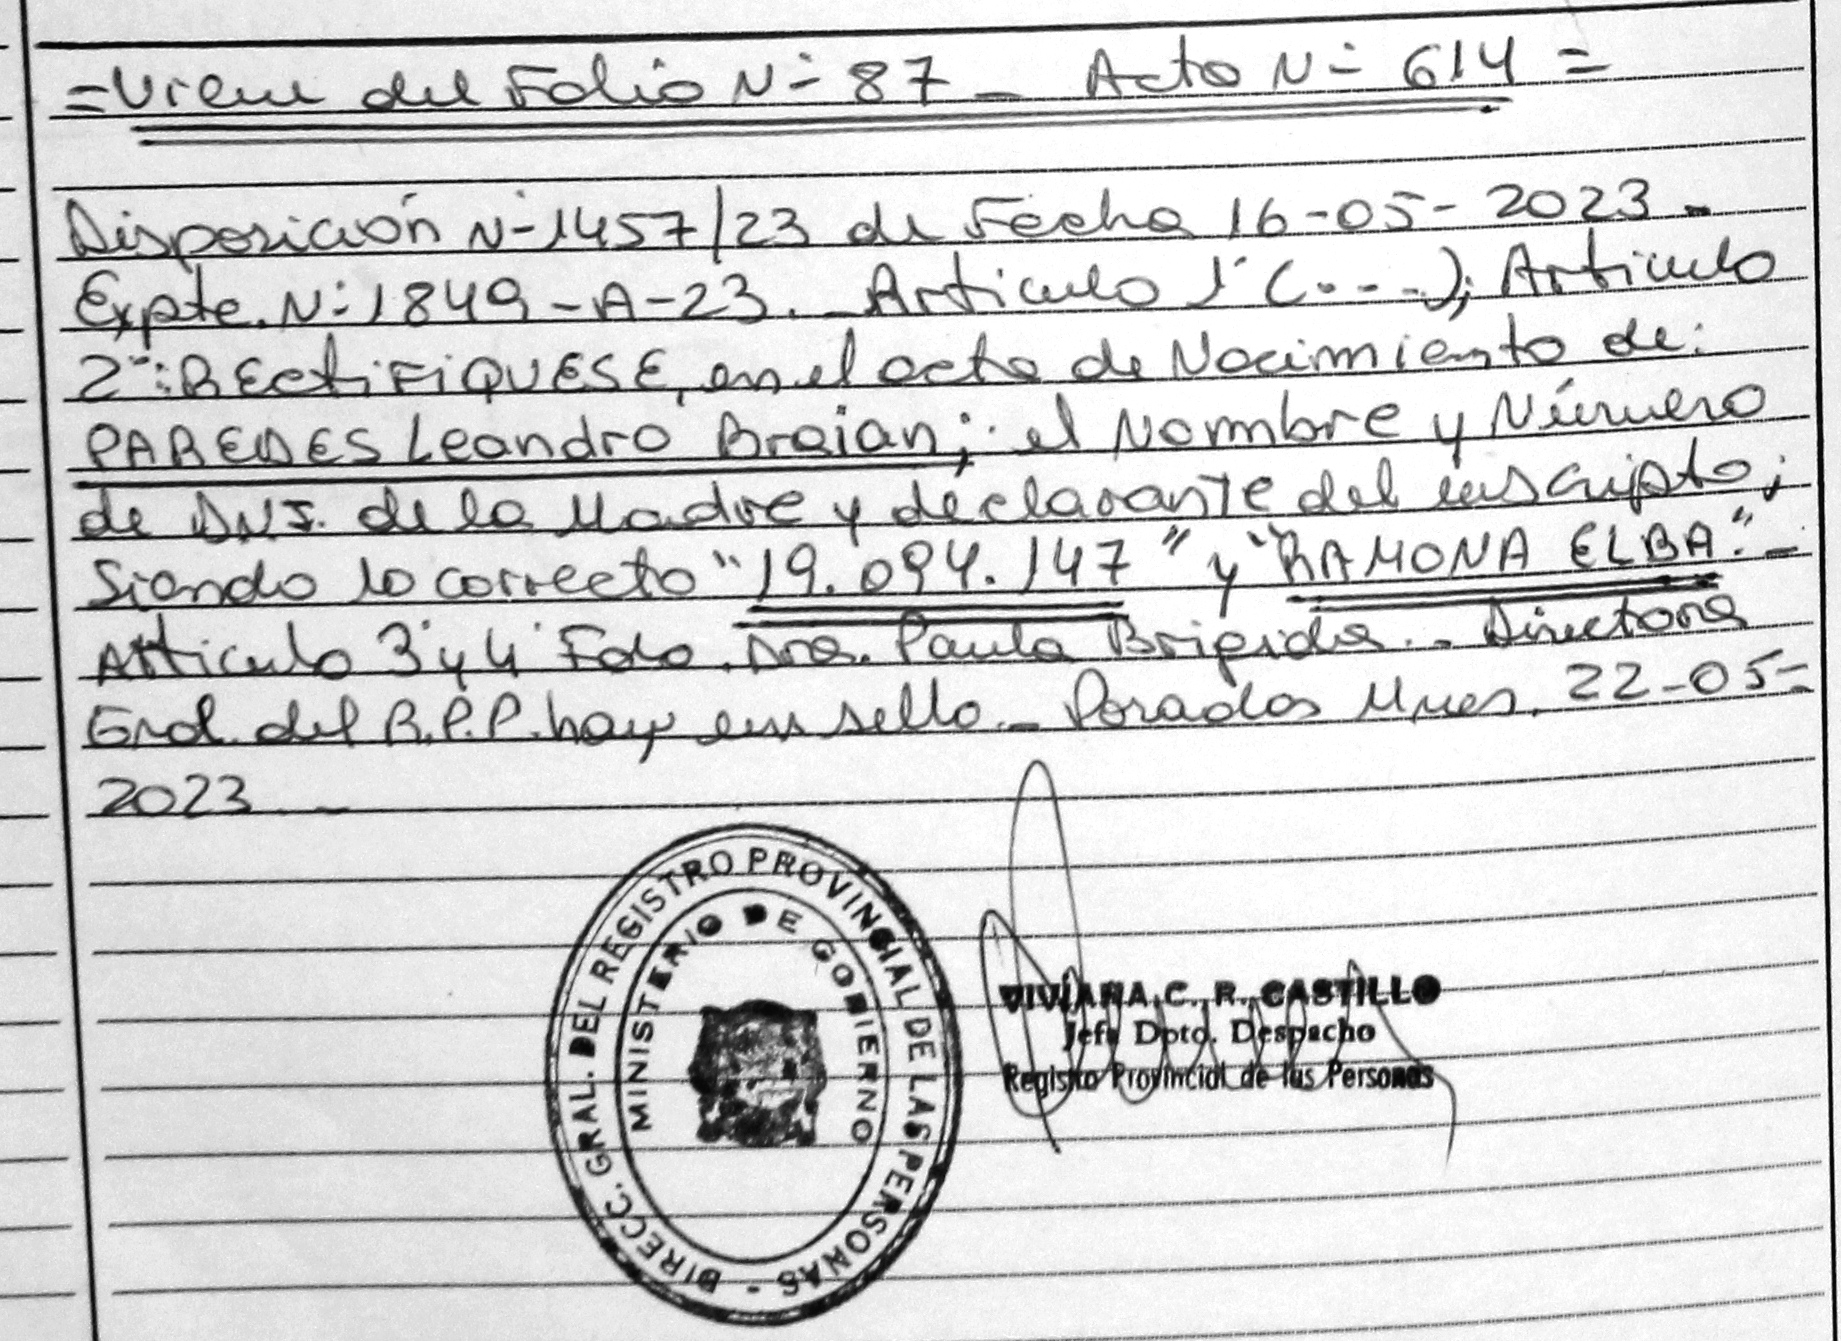 =Viene del Folio N° 87 _ Acta N° 614 =
Disposición N° 1457/23 de Fecha 16-05-2023.-
Expte. N° 1849-A-23._ Articulo 1° (....); Articulo
2°: RECTIFIQUESE, en el acta de Nacimiento de:
PAREDES Leandro Braian; el Nombre y Número
de DNI. de la Madre y declarante del inscripto;
Siendo lo correcto "19.094.147" y "RAMONA ELBA".-
Articulo 3° y 4° Fdo. Dra. Paula Brigida.. Directora
Gral. del R.P.P. hay un sello._ Posadas Mnes. 22-05-
2023._
DIRECC. GRAL. DEL REGISTRO PROVINCIAL DE LAS PERSONAS -
MINISTERIO DE GOBIERNO
VIVIANA C. R. CASTILLO
Jefe Dpto. Despacho
Registro Provincial de las Personas